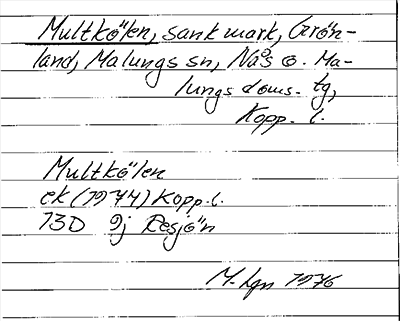 Multkölen, sank mark, Grön-
land, Malungs sn, Nås o. Ma-
lungs doms. tg,
Kopp. l.
Multkölen
ek (1974) Kopp. l.
13D 9j Resjön
M-lgn 1976